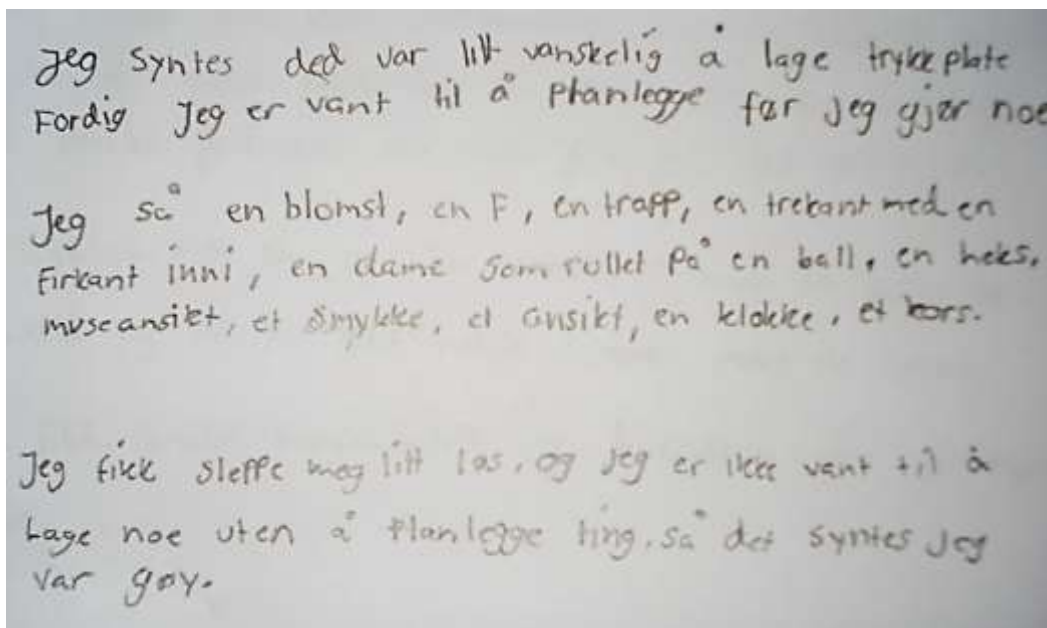 Jeg syntes ded var litt vanskelig å lage trykkplate
Fordig Jeg er vant til å Phanlegge før jeg gjør noe
Jeg så en blomst, en F, en trapp, en trekant med en
Firkant inni, en dame som rullet på en ball, en heks,
museansikt, et smykke, et ansikt, en klokke, et kors.
Jeg fikk sleppe meg litt løs, og jeg er ikke vant til å
Lage noe uten å Planlegge ting, så det syntes jeg
var gøy.